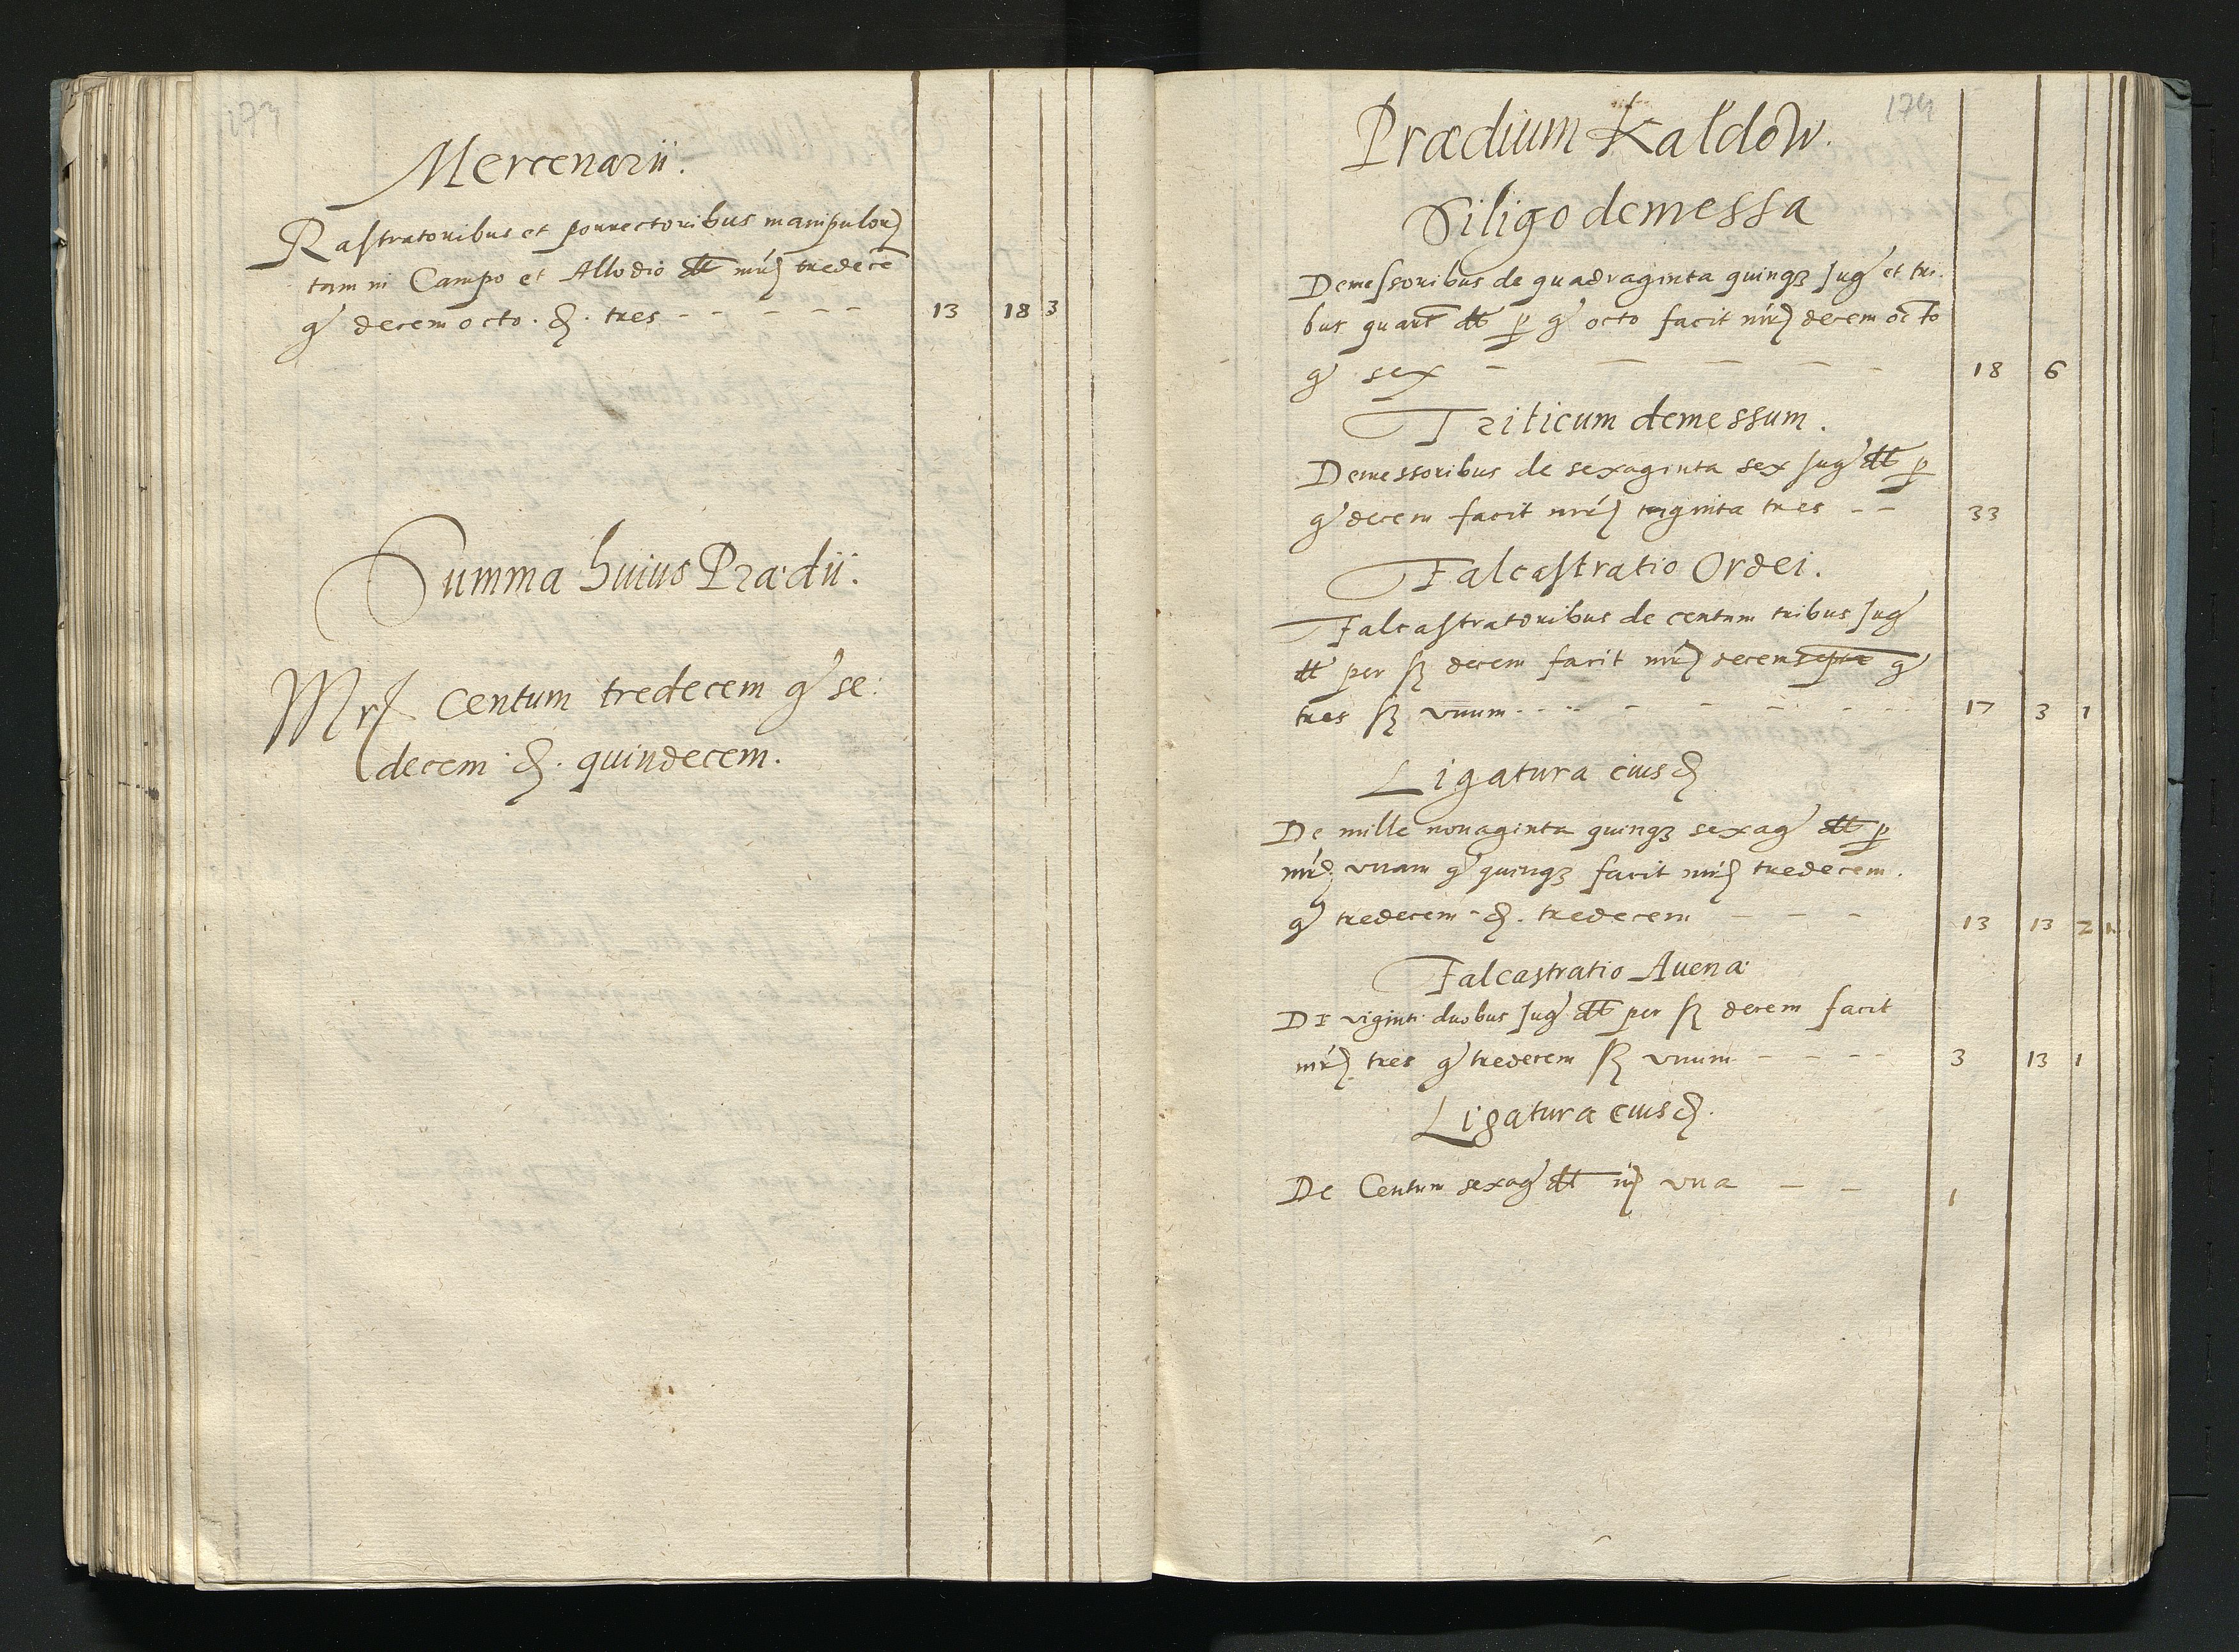 173
Mercenarii.
Rastratoribus et porrectoribus manipulor
tam in Campo et Allodio dt mrc tredece
gr decem octo. d. tres - - - - - 13 18 3
Summa huius Prædii.
Mrc Centum tredecem gr se:
decem d. quindecem.
174
Prædium Kaldow.
Siligo demessa
Demessoribus de quadraginta quinqz Jug et tri.
bus quart dt p gr octo facit mrc decem octo
gr sex - - - - 18 6
Triticum demessum.
Demessoribus de sexaginta sex Jug dt p
gr decem facit mrc triginta tres - - 33
Falcastratio Ordei.
Falcastratoribus de centum tribus Jug
dt per ß decem facit mrc decem septe gr
tres ß vnum - - - - - - 17 3 1
Ligatura eiusd
De mille nonaginta quinqz sexag dt p
mrc vnam gr quinqz facit mrc tredecem.
gr tredecem d. tredecem - - - 13 13 2 1
Falcastratio Auenæ
De viginti duobus Jug dt per ß decem facit
mrc tres gr tredecem ß vnum - - - - 3 13 1
Ligatura eiusd.
De Centum sexag dt mrc vna - - 1